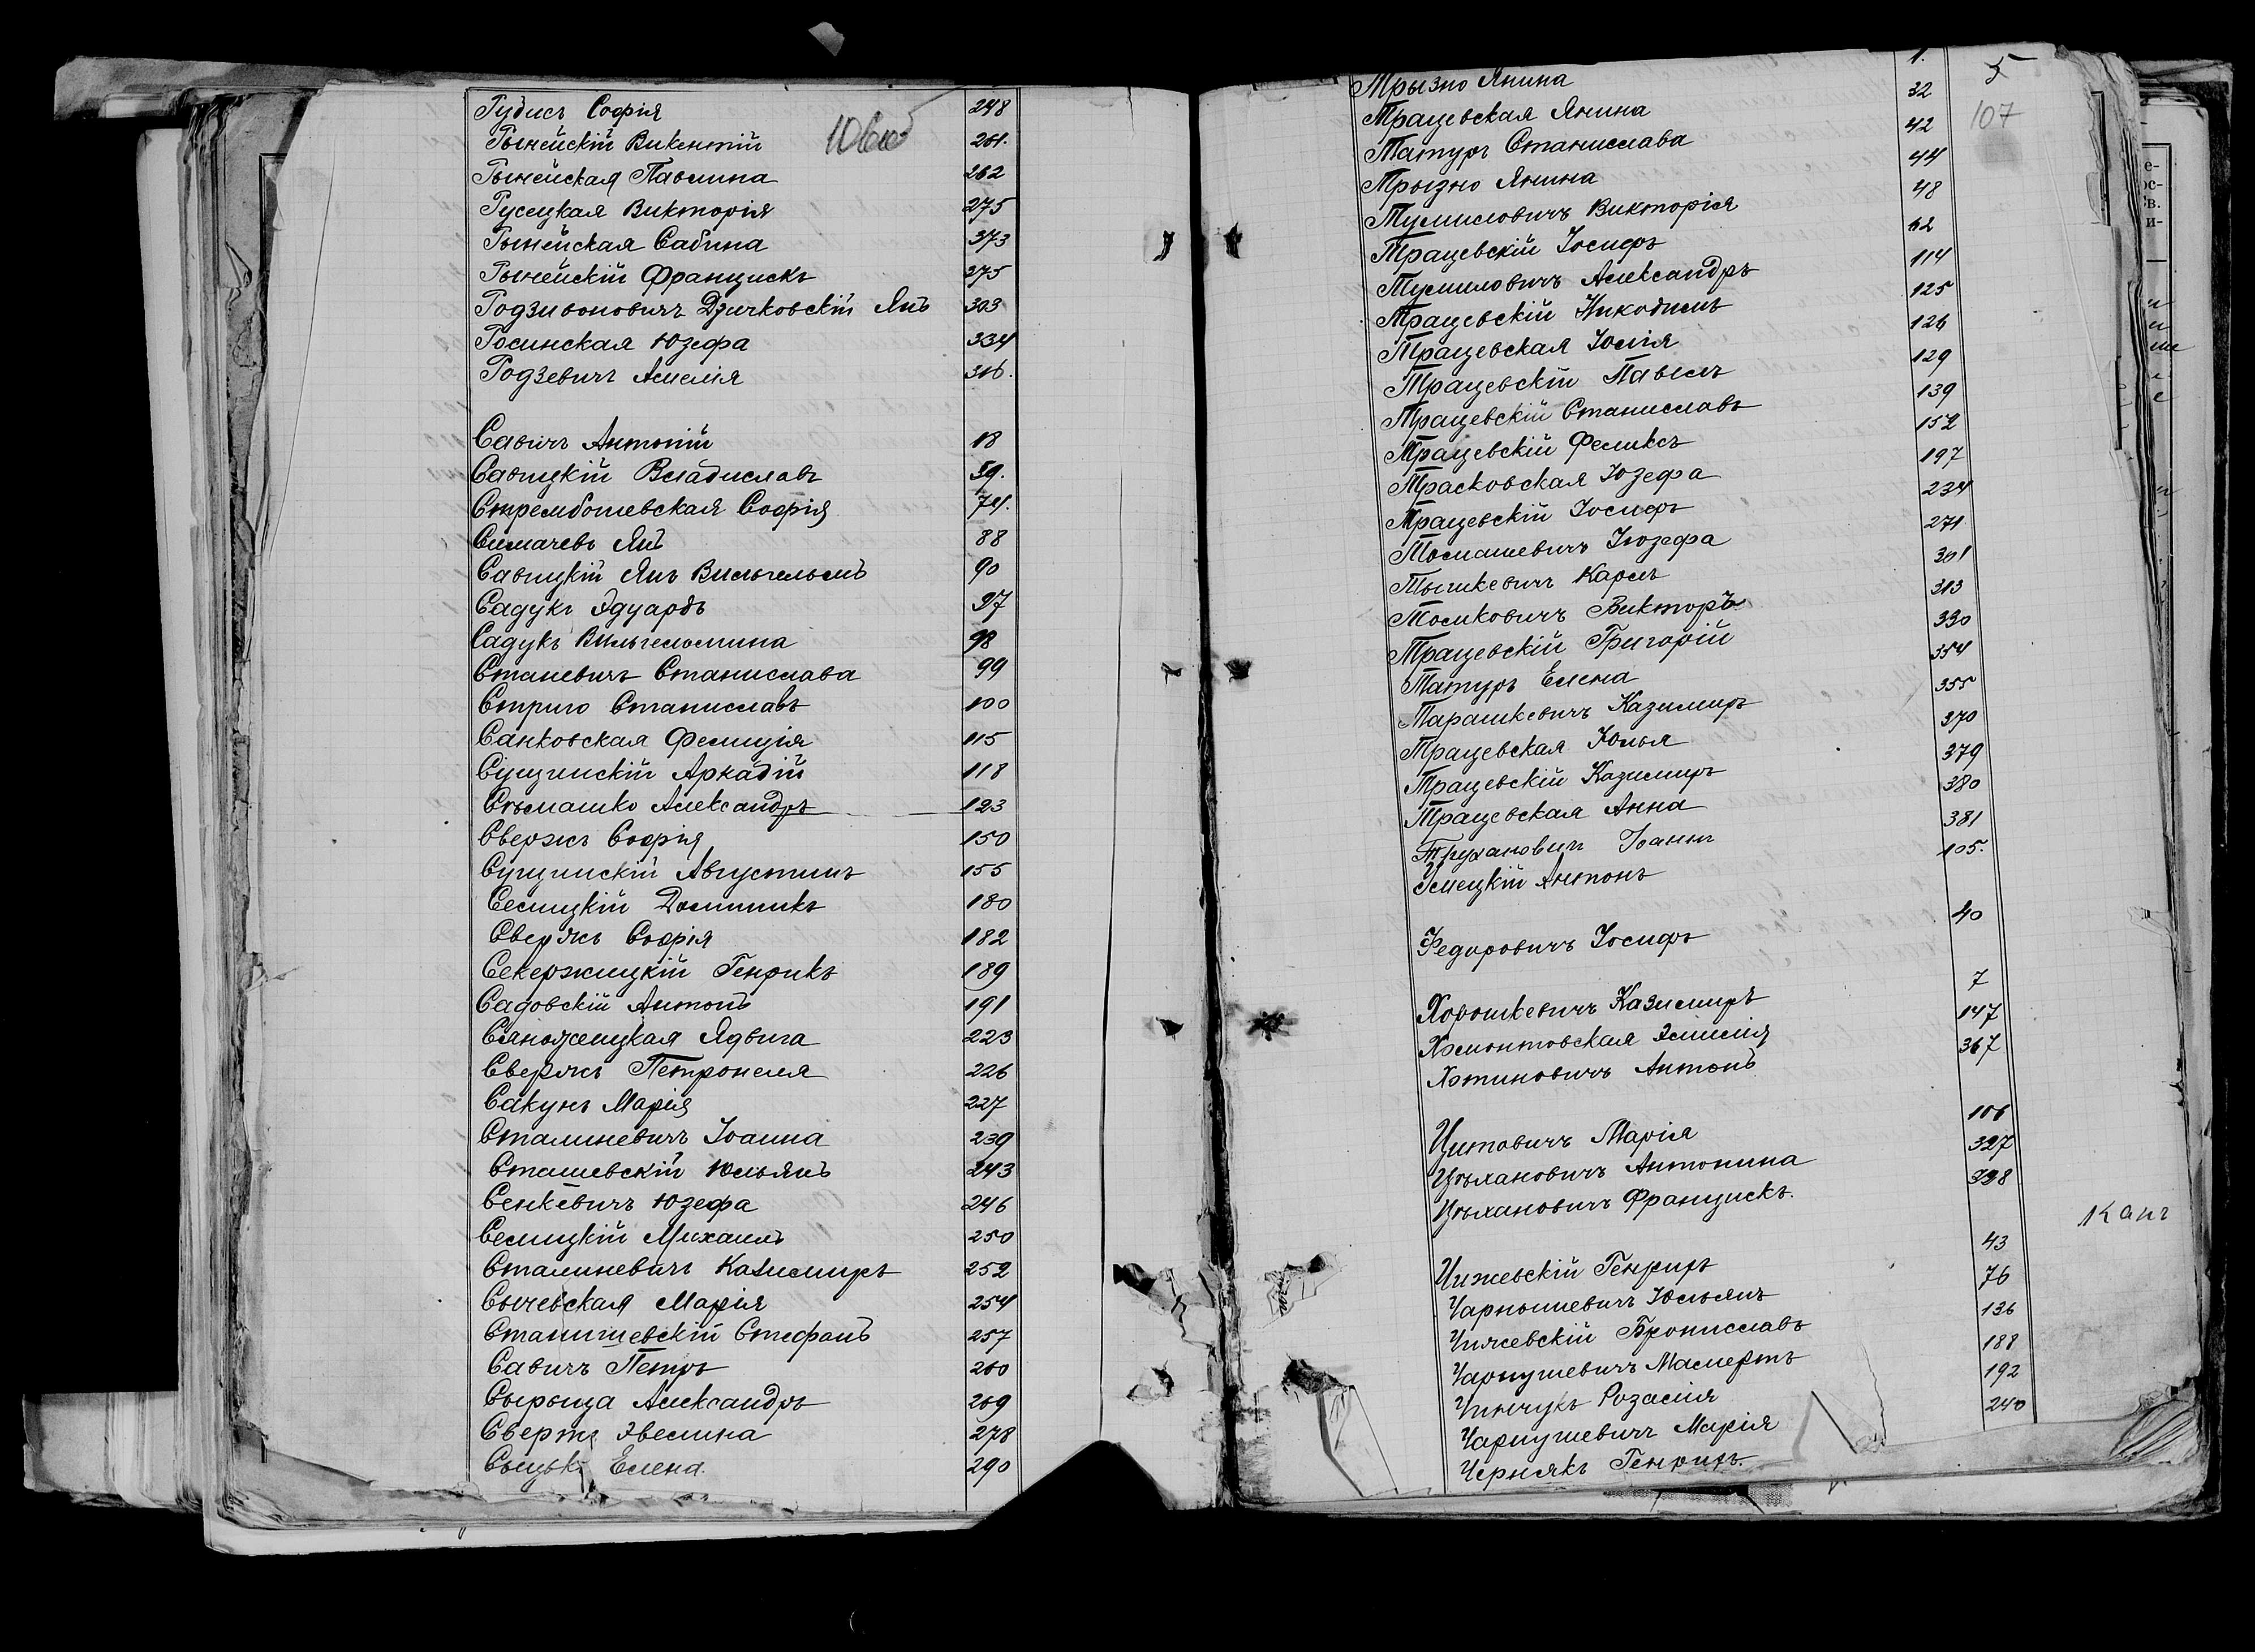 Рудисъ Софія 248
Рымейскій Викентій 261.
Рымейская Павлина 262
Русецкая Викторія 275
Рымейская Сабина 373
Рымейскій Францискъ 275
Родзивоновичъ Дзичковскій Янъ 303
Росинская Юзефа 334
Родзевичъ Амелія 316.
Савичъ Антоній 18
Савицкій Владиславъ 59.
Стрембошевская Софія 74.
Симачевъ Янъ 88
Савицкій Янъ Вильгельмъ 90
Садукъ Эдуардъ 97
Садукъ Вильгельмина 98
Станевичъ Станислава 99
Стриго Станиславъ 100
Санковская Фелиція 115
Сущинскій Аркадій 118
Стъмашко Александръ 123
Свержъ Софія 150
Сущинскій Августинъ 155
Селицкій Доминикъ 180
Свержъ Софія 182
Секержицкій Генрикъ 189
Садовскій Антонъ 191
Сяножецкая Ядвига 223
Свержъ Петронеля 226
Сакунъ Марія 227
Сталиневичъ Іоанна 239
Сташевскій Юльянъ 243
Сенкевичъ Юзефа 246
Селицкій Михаилъ 250
Сталиневичъ Казимиръ 252
Сычевская Марія 254
Станишевскій Стефанъ 257
Савичъ Петръ 260
Сырыца Александръ 269
Свержъ Эвелина 278
Елена 290
5
107
Трызно Янина 1.
Трацевская Янина 32
Татуръ Станислава 42
Трызно Янина 44
Тумиловичъ Викторія 48
Трацевскій Іосифъ 62
Тумиловичъ Александръ 114
Трацевскій Никодимъ 125
Трацевская Юлія 126
Трацевскій Павелъ 129
Трацевскій Станиславъ 139
Трацевскій Феликсъ 152
Трасковская Юзефа 197
Трацевскій Іосифъ 234
Томашевичъ Іюзефа 271
Тышкевичъ Карлъ 301
Толковичъ Викторъ 313
Трацевскій Григорій 330
Татуръ Елена 354
Тарашкевичъ Казимиръ 355
Трацевская Юлья 370
Трацевскій Казимиръ 379
Трацевская Анна 380
Трухановичъ Іоаннъ 381
Умецкій Антонъ 105.
Федоровичъ Іосифъ 40
Хорошкевичъ Казимиръ 7
Хомонтовская Эмилія 147
Хотиновичъ Антонъ 367
Цитовичъ Марія 106
Цѣхановичъ Антонина 327
Цѣхановичъ Францискъ. 328
Чижевскій Генрихъ 43
Чарнышевичъ Юльянъ 76
Чижевскій Брониславъ 136
Чарнушевичъ 188
Розалія 192
Чарнушевичъ Марія 240
Чернякъ Генрихъ.